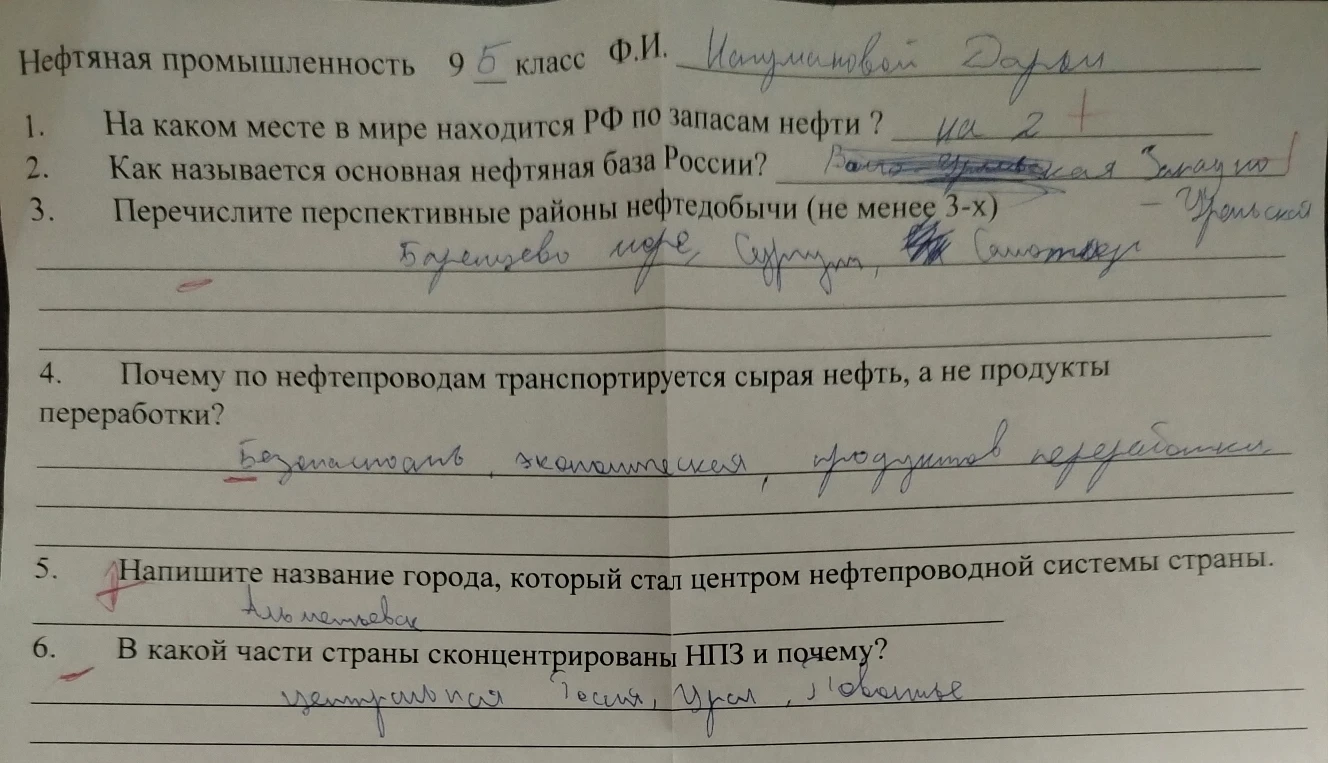 Нефтяная промышленность 9 Б класс Ф.И. Дарьи
1. На каком месте в мире находится РФ по запасам нефти ? на 2 +
2. Как называется основная нефтяная база России? кая Западно
- Уральской
3. Перечислите перспективные районы нефтедобычи (не менее 3-х)
Баренцево море, Сургут, Самотлор
4. Почему по нефтепроводам транспортируется сырая нефть, а не продукты
переработки?
Безопасность, экономическая, продуктов переработки
5. Напишите название города, который стал центром нефтепроводной системы страны.
Альметьевск
6. В какой части страны сконцентрированы НПЗ и почему?
центральная Россия, Урал, Поволжье